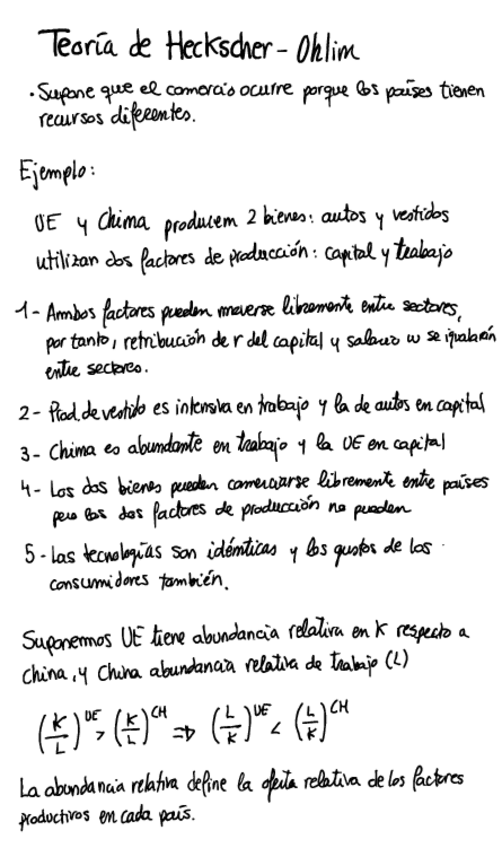 Teoría de Heckscher - Ohlim
· Supone que el comercio ocurre porque los países tienen
recursos diferentes.
Ejemplo:
UE y China producem 2 bienes: autos y vestidos
utilizan dos factores de producción: capital y trabajo
1- Ambos factores pueden moverse libremente entre sectores,
por tanto, retribución de r del capital y salario w se igualarán
entre sectores.
2- Prod. de vestido es intensiva en trabajo y la de autos en capital
3- China es abundante en trabajo y la UE en capital
4- Los dos bienes pueden comerciarse libremente entre países
pero los dos factores de producción no pueden
5- Las tecnologías son idémticas y los gustos de los
consumidores también.
Suponemos UE tiene abundancia relativa en K respecto a
China, y China abundancia relativa de trabajo (L)
(K/L)^UE > (K/L)^CH ⇒ (L/K)^UE < (L/K)^CH
La abundancia relativa define la oferta relativa de los factores
productivos en cada país.